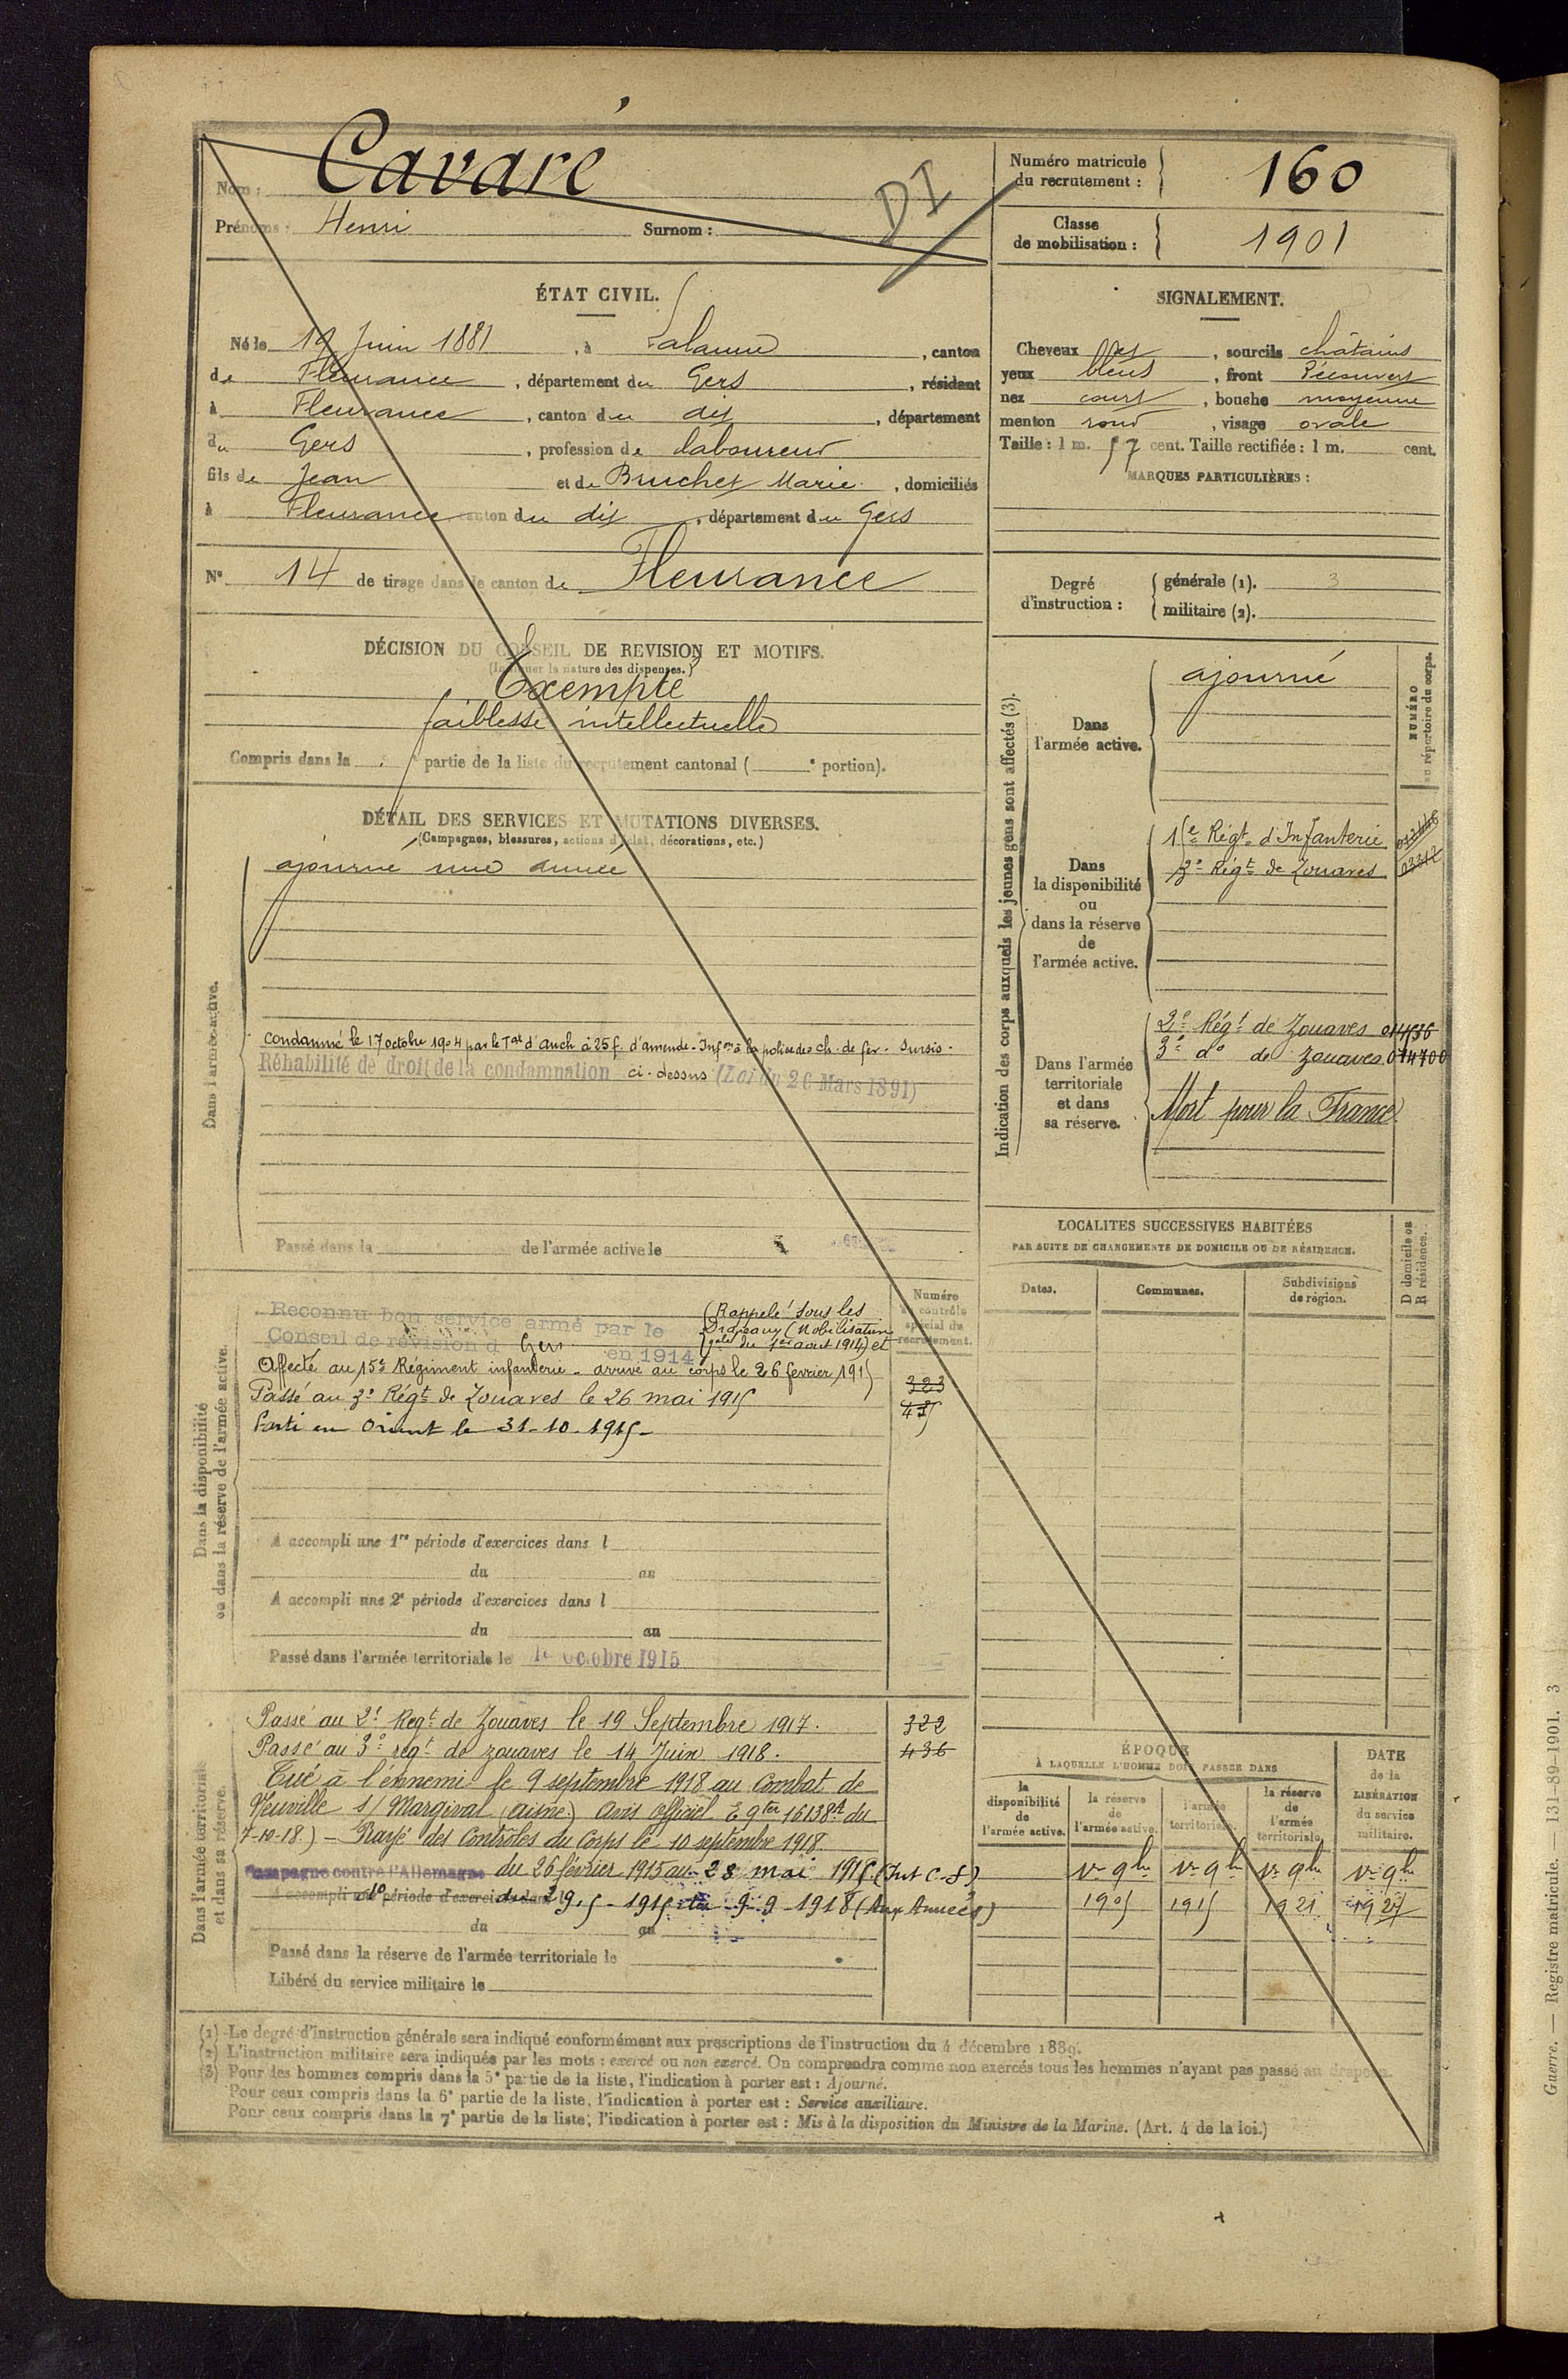 Nom : Cavaré
Prénoms : Henri Surnom :
DI
Numéro matricule du recrutement : 160
Classe de mobilisation : 1901
ÉTAT CIVIL.
Né le 19 Juin 1881, à Lalanne, canton
de Fleurance, département du Gers, résidant
à Fleurance, canton du dit, département
du Gers, profession de laboureur
fils de Jean et de Bruchet Marie, domiciliés
à Fleurance canton du dit, département du Gers
N° 14 de tirage dans le canton de Fleurance
SIGNALEMENT.
Cheveux et, sourcils châtains
yeux bleus, front découvert
nez court, bouche moyenne
menton rond, visage ovale
Taille : 1 m. 57 cent. Taille rectifiée : 1 m. cent.
MARQUES PARTICULIÈRES :
Degré d'instruction : générale (1). 3
militaire (2).
DÉCISION DU CONSEIL DE REVISION ET MOTIFS.
(Indiquer la nature des dispenses.)
Exempté
faiblesse intellectuelle
Compris dans la partie de la liste du recrutement cantonal ( e portion).
DÉTAIL DES SERVICES ET MUTATIONS DIVERSES.
(Campagnes, blessures, actions d'éclat, décorations, etc.)
Dans l'armée active.
ajourné une année
Condamné le 17 octobre 1904 par le Tal d'Auch à 25 f. d'amende - Infon à la police des ch. de fer - Sursis -
Réhabilité de droit de la condamnation ci-dessus (Loi du 26 Mars 1891)
Passé dans la de l'armée active le
Indication des corps auxquels les jeunes gens sont affectés (3).
NUMÉRO au répertoire du corps.
Dans l'armée active.
ajourné
Dans la disponibilité ou dans la réserve de l'armée active.
15e Régt d'Infanterie
3e Régt de Zouaves
Dans l'armée territoriale et dans sa réserve.
2e Régt de Zouaves
3e do de Zouaves 014700
Mort pour la France.
LOCALITÉS SUCCESSIVES HABITÉES
PAR SUITE DE CHANGEMENTS DE DOMICILE OU DE RÉSIDENCE.
Dates. Communes. Subdivisions de région. D domicile ou R résidence.
Dans la disponibilité ou dans la réserve de l'armée active.
Numéro au contrôle spécial du recrutement.
Reconnu bon service armé par le
Conseil de révision d Gers en 1914
(Rappelé sous les
Drapeaux (Mobilisation
gale du 1er aout 1914) et
Affecté au 15e Régiment infanterie - arrivé au corps le 26 février 1915 323
Passé au 3e Régt de Zouaves le 26 mai 1915
Parti en Orient le 31-10-1915 -
A accompli une 1re période d'exercices dans l
du au
A accompli une 2e période d'exercices dans l
du au
Passé dans l'armée territoriale le 1er octobre 1915
Dans l'armée territoriale et dans sa réserve.
Passé au 2e Regt de Zouaves le 19 Septembre 1917. 322
Passé au 3e regt de zouaves le 14 Juin 1918. 436
Tué à l'ennemi le 9 septembre 1918 au Combat de
Neuville s/ Margival (Aisne.) Avis officiel
7-10-18.) - Rayé des Contrôles du Corps le 10 septembre 1918.
Campagne contre l'Allemagne du 26 février 1915 au 28 mai 1915 (Int C-S)
A accompli une période d'exercices dans l
do du 29-5-1915 au 9-9-1918 (Aux Armées)
du au
Passé dans la réserve de l'armée territoriale le
Libéré du service militaire le
ÉPOQUE À LAQUELLE L'HOMME DOIT PASSER DANS
la disponibilité de l'armée active.
la réserve de l'armée active.
l'armée territoriale.
la réserve de l'armée territoriale.
DATE de la LIBÉRATION du service militaire.
1905 1915 1921 1927
(1) Le degré d'instruction générale sera indiqué conformément aux prescriptions de l'instruction du 4 décembre 1889.
(2) L'instruction militaire sera indiquée par les mots : exercé ou non exercé. On comprendra comme non exercés tous les hommes n'ayant pas passé au drapeau.
(3) Pour les hommes compris dans la 5e partie de la liste, l'indication à porter est : Ajourné.
Pour ceux compris dans la 6e partie de la liste, l'indication à porter est : Service auxiliaire.
Pour ceux compris dans la 7e partie de la liste, l'indication à porter est : Mis à la disposition du Ministre de la Marine. (Art. 4 de la loi.)
Guerre. — Registre matricule. 131-89-1901. 3